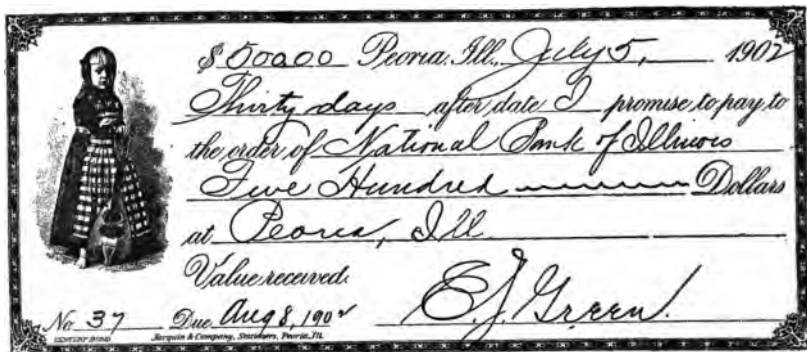 $500.00 Peoria, Ill., July 5, 1902
Thirty days after date I promise to pay to
the order of National Bank of Illinois
Five Hundred Dollars
at Peoria, Ill
Value received.
No. 37 Due Aug 8, 1902 E. J. Green.
CENTURY BOND Jacquin & Company, Stationers, Peoria, Ill.